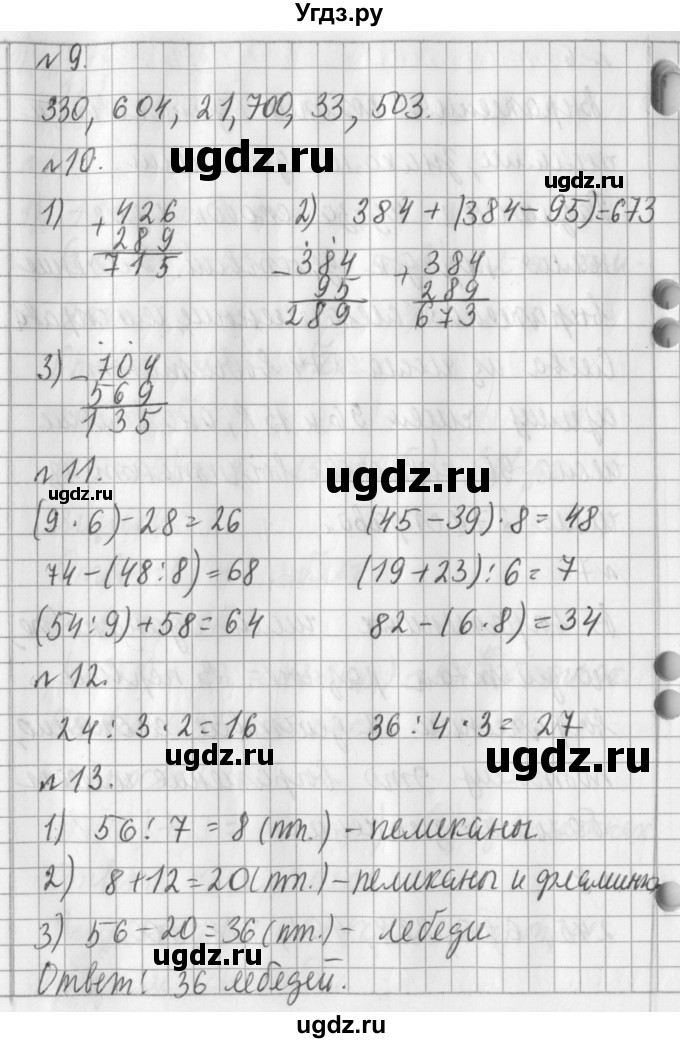 Угдз.ру
№ 9.
330, 604, 21, 700, 33, 503.
№ 10.
ugdz.ru
ugdz.ru
1) + 426
289
715
2) 384 + (384 - 95) = 673
- 384
95
289
+ 384
289
673
3) - 704
569
135
№ 11.
ugdz.ru
ugdz.ru
(9 · 6) - 28 = 26
(45 - 39) · 8 = 48
74 - (48 : 8) = 68
(19 + 23) : 6 = 7
(54 : 9) + 58 = 64
82 - (6 · 8) = 34
№ 12.
24 : 3 · 2 = 16
36 : 4 · 3 = 27
ugdz.ru
ugdz.ru
№ 13.
1) 56 : 7 = 8 (пт.) - пеликаны
2) 8 + 12 = 20 (пт.) - пеликаны и фламинго
3) 56 - 20 = 36 (пт.) - лебеди
ugdz.ru
Ответ: 36 лебедей.
ugdz.ru